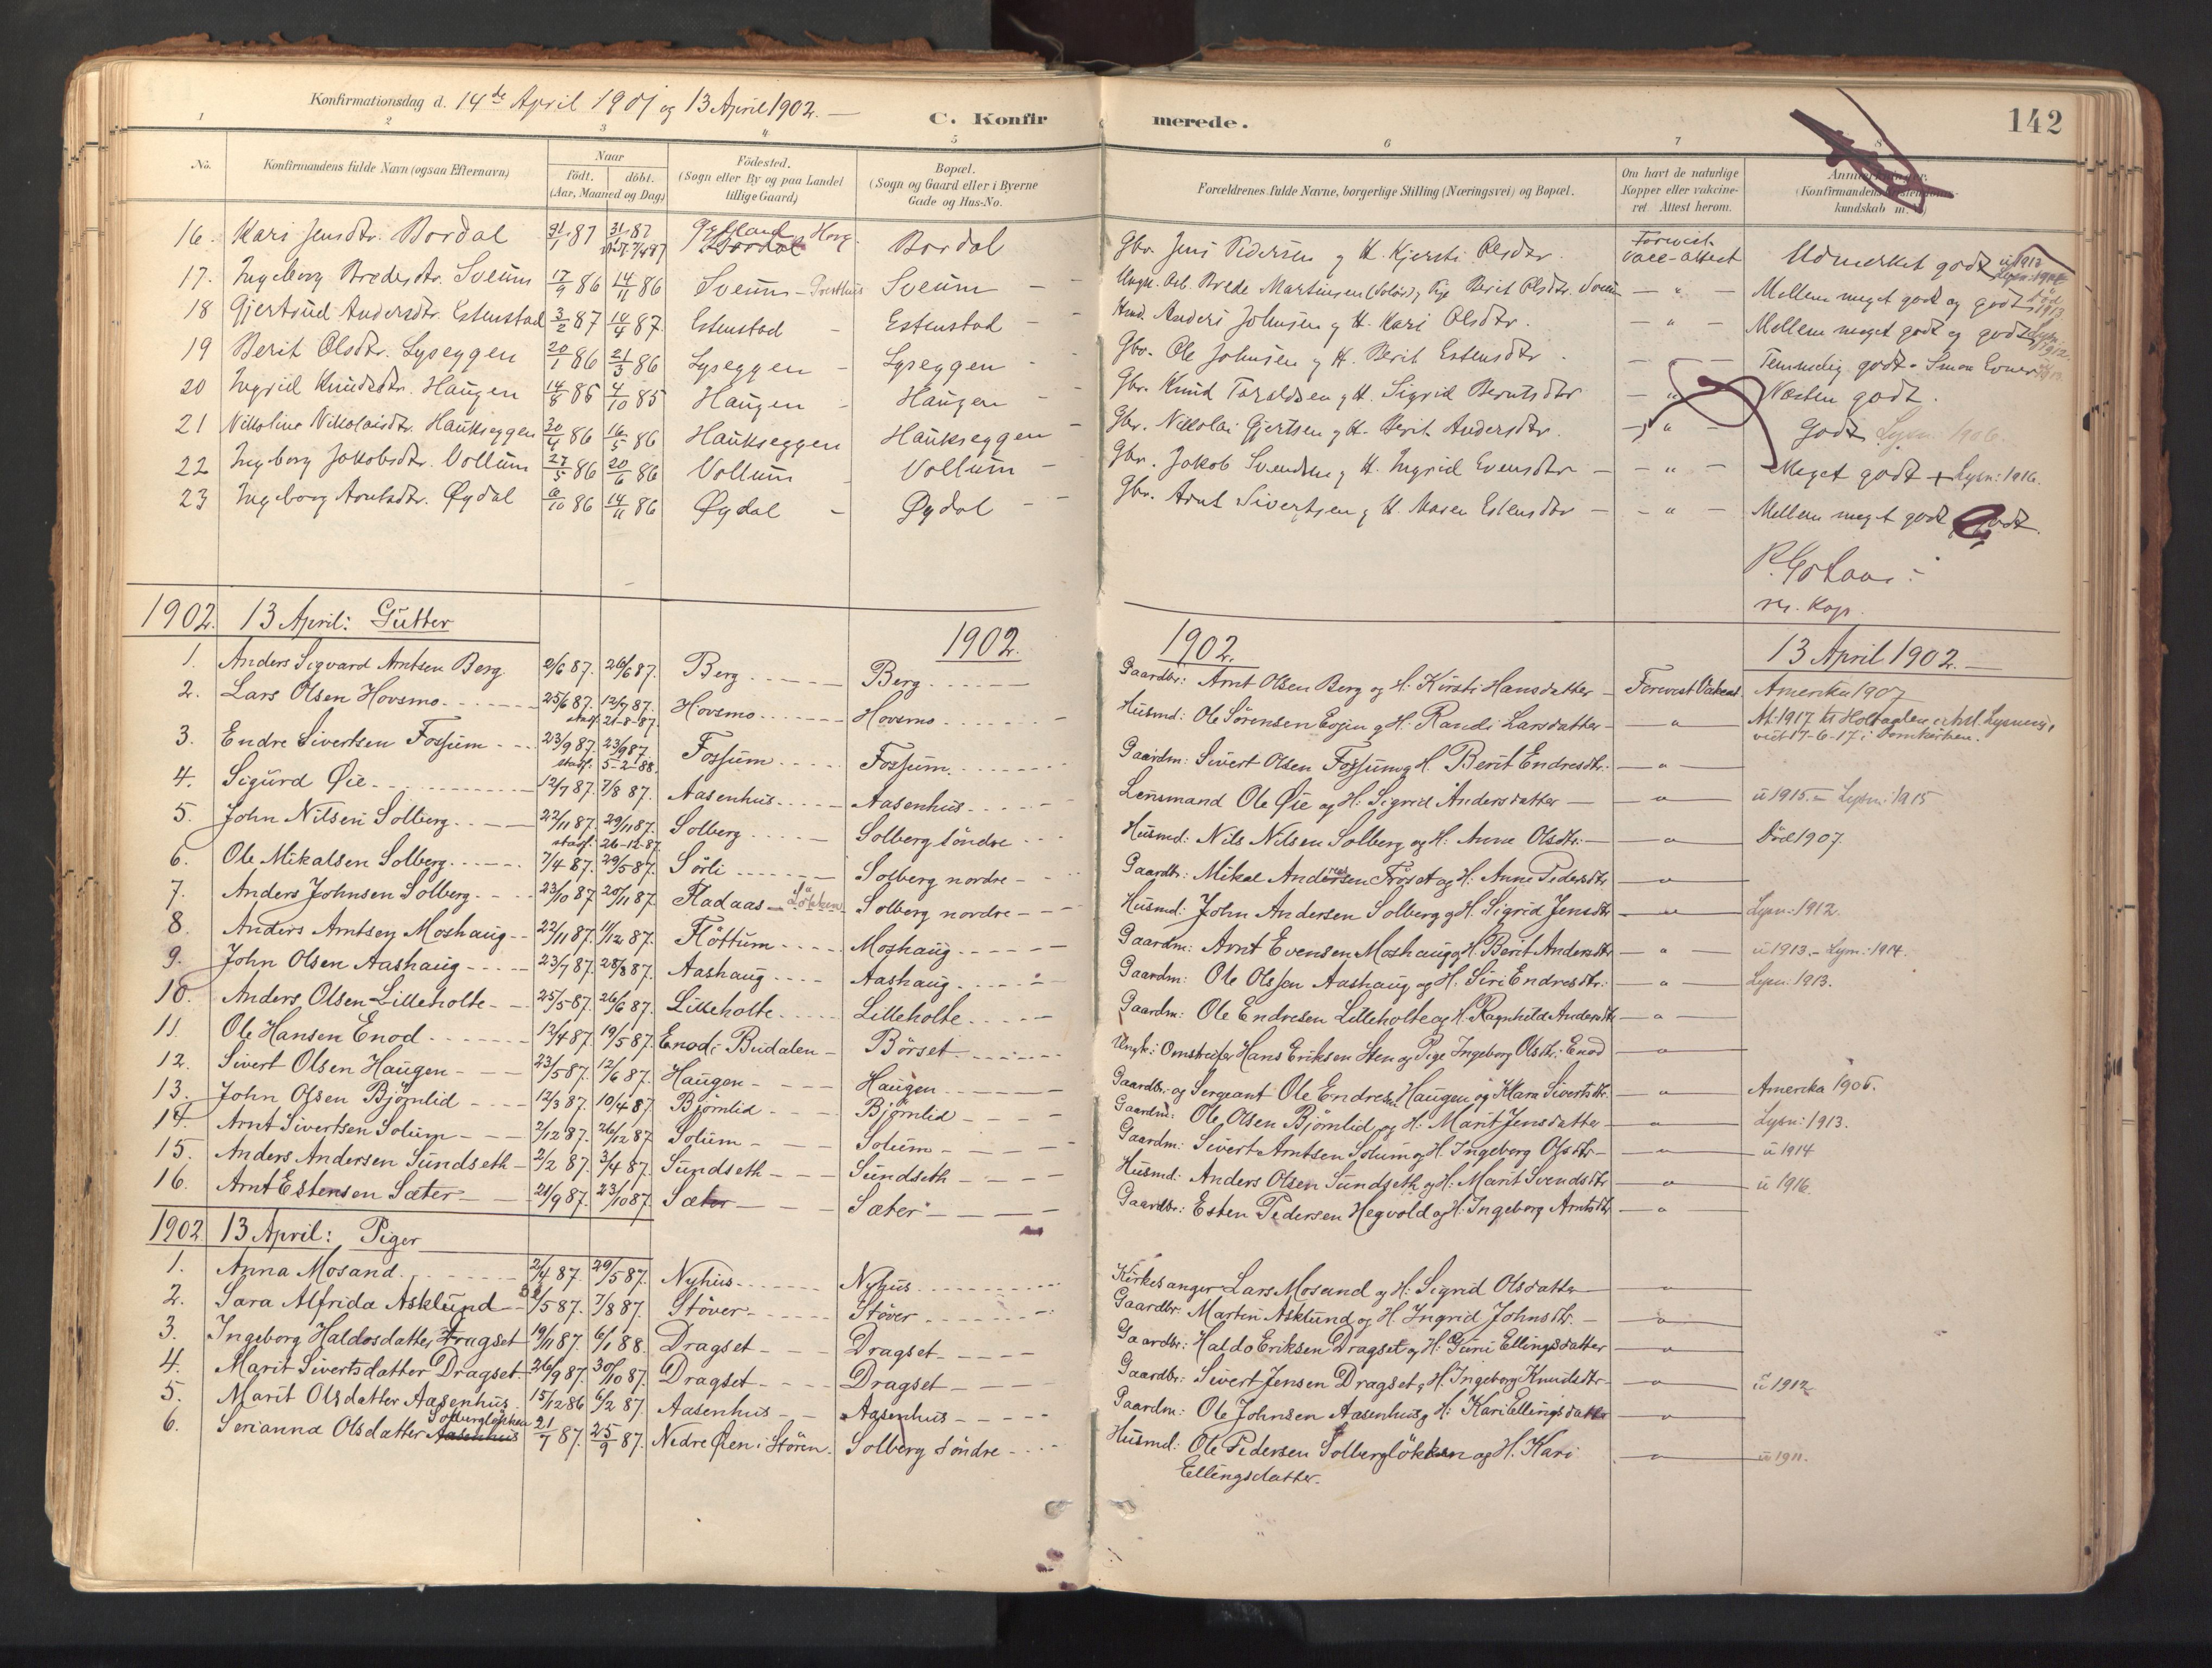 Konfirmationsdag d. 14de April 1901 og 13 April 1902. —
C. Konfirmerede.
142
1 2 3 4 5 6 7 8
No. Konfirmandens fulde Navn (ogsaa Efternavn) Naar født. døbt. (Aar, Maaned og Dag) Födested. (Sogn eller By og paa Landet tillige Gaard) Bopæl. (Sogn og Gaard eller i Byerne Gade og Hus-No. Forældrenes fulde Navne, borgerlige Stilling (Næringsvei) og Bopæl. Om havt de naturlige Kopper eller vakcineret. Attest herom. (Konfirmandens kundskab m.
16. Kari Jensdtr. Bordal 31/1 87 31/1 87 Bordal Gbr. Jens Pedersen og H. Kjersti Olsdtr. Udmerket godt
17. Ingeborg Bredesdtr. Sveum 17/9 86 14/11 86 Sveum - Presthus Sveum Brede Martinsen (Solør) og Pige Berit Olsdtr. Sveum — " — Mellem meget godt og godt
18 Gjertrud Andersdtr. Estenstad 3/2 87 10/4 87. Estenstad - Estenstad - Husmd. Anders Johnsen og H. Kari Olsdtr. — " — Mellem meget godt og godt
19 Berit Olsdtr. Lyseggen 20/1 86 21/3 86 Lyseggen - Lyseggen - Gbr. Ole Johnsen og H. Berit Estensdtr. Temmelig godt.
20 Ingrid Knudsdtr. Haugen 14/8 85 4/10 85 Haugen - Haugen - Gbr. Knud Toraldsen og H. Sigrid Berntsdtr — " — Næsten godt.
21 Nikoline Nikolaisdtr. Haukseggen 30/4 86 16/5 86 Haukseggen Haukseggen - Gbr. Nikolai Gjertsen og H. Berit Andersdtr. — " — Godt Lysn: 1906.
22 Ingeborg Jakobsdtr. Vollum 27/5 86 20/6 86 Vollum - Vollum - Gbr. Jakob Svendsen og H. Ingrid Evensdtr — " — Meget godt + Lysn: 1916.
23 Ingeborg Arntsdtr. Øydal 6/10 86 14/11 86 Øydal - Øydal - Gbr. Arnt Sivertsen og H. Maren Estensdtr — " — Mellem meget godt og godt.
res. Kap.
1902. 13 April: Gutter 1902. 1902. 13 April 1902. —
1. Anders Sigvard Arntsen Berg 2/6 87. 26/6 87. Berg Berg Gaardbr: Arnt Olsen Berg og H: Kirsti Hansdatter Amerika 1907
2. Lars Olsen Hovsmo 25/6 87. 12/7 87. stadf. 21-8-87. Hovsmo Hovsmo Husmd: Ole Sørensen Evjen og H: Randi Larsdatter — " — viet 17-6-17 i Domkirken.
3. Endre Sivertsen Fossum 23/9 87. 23/9 87. stadf. 5-2-88. Fossum Fossum Gaardm: Sivert Olsen Fossum og H. Berit Endresdtr: — " —
4. Sigurd Øie 12/7 87. 7/8 87. Aasenhus Aasenhus Lensmand Ole Øie og H: Sigrid Andersdatter — " — u 1915. - Lysn: 1915
5. John Nilsen Solberg 22/11 87. 29/11 87. stadf: 26-12-87. Solberg Solberg söndre Husmd: Nils Nilsen Solberg og H: Anne Olsdtr: — " — Död 1907.
6. Ole Mikalsen Solberg 7/4 87. 29/5 87. Sörli Solberg nordre Gaardbr: Mikal Andersen Fröset og H: Anne Pedersdtr — " —
7. Anders Johnsen Solberg 23/10 87 20/11 87. Fladaas - Lökken Solberg nordre Husmd: John Andersen Solberg og H. Sigrid Jensdtr — " — Lysn: 1912.
8. Anders Arntsen Moshaug 22/11 87. 11/12 87. Flöttum Moshaug Gaardm: Arnt Evensen Moshaug og H. Berit Andersdtr — " — u 1913. - Lysn: 1914.
9. John Olsen Aashaug 23/7 87. 28/8 87. Aashaug Aashaug Gaardm: Ole Olsen Aashaug og H. Siri Endresdtr: — " — Lysn: 1913.
10. Anders Olsen Lilleholte 25/5 87. 26/6 87. Lilleholte Lilleholte Gaardm: Ole Endresen Lilleholte og H. Ragnhild Andersdtr — " —
11. Ole Hansen Enod 12/4 87. 19/5 87. Enod i Budalen Börset Ungk: Omstreifer Hans Eriksen Sten og Pige Ingeborg Olsdtr: Enod — " —
12. Sivert Olsen Haugen 23/5 87. 12/6 87. Haugen Haugen Gaardbr. og Sergeant Ole Endresen Haugen og Mara Sivertsdtr. — " — Amerika 1906.
13. John Olsen Bjömlid 12/3 87. 10/4 87. Bjömlid Bjömlid Gaardm: Ole Olsen Bjömlid og H: Marit Jensdatter — " — Lysn: 1913.
14. Arnt Sivertsen Solum 2/12 87. 26/12 87. Solum Solum Gaardm: Sivert Arntsen Solum og H. Ingeborg Olsdtr — " — u 1914
15. Anders Andersen Sundseth 2/2 87. 3/4 87. Sundseth Sundseth Husmd: Anders Olsen Sundseth og H: Marit Svendsdtr — " — u 1916.
16. Arnt Estensen Sæter 21/9 87. 23/10 87. Sæter Sæter Gaardbr: Esten Pedersen Hegvold og H: Ingeborg Arntsdtr — " —
1902 13 April: Piger
1. Anna Mosand 2/4 87. 29/5 87. Nyhus Nyhus Kirkesanger Lars Mosand og H: Sigrid Olsdatter — " —
2. Sara Alfrida Asklund /5 87. 7/8 87. Stöver Stöver Gaardbr: Martin Asklund og H. Ingrid Johnsdtr. — " —
3. Ingeborg Haldosdatter Dragset 19/11 87. 6/1 88. Dragset Dragset Gaardbr: Haldo Eriksen Dragset og H: Guru Ellingsdatter — " —
4. Marit Sivertsdatter Dragset 26/9 87. 30/10 87. Dragset Dragset Gaardbr: Sivert Jensen Dragset, H. Ingeborg Knudsdtr — " — u 1912
5. Marit Olsdatter Aasenhus 15/12 86 6/2 87. Aasenhus Aasenhus Gaardm: Ole Johnsen Aasenhus og H: Kari Ellingsdatter — " —
6. Serianna Olsdatter Aasenhus Solberglökken 21/7 87. 25/9 87. Nedre Øien i Stören. Solberg Söndre Husmd: Ole Pedersen Solberglökken og H. Kari — " — u 1911.
Ellingsdatter.